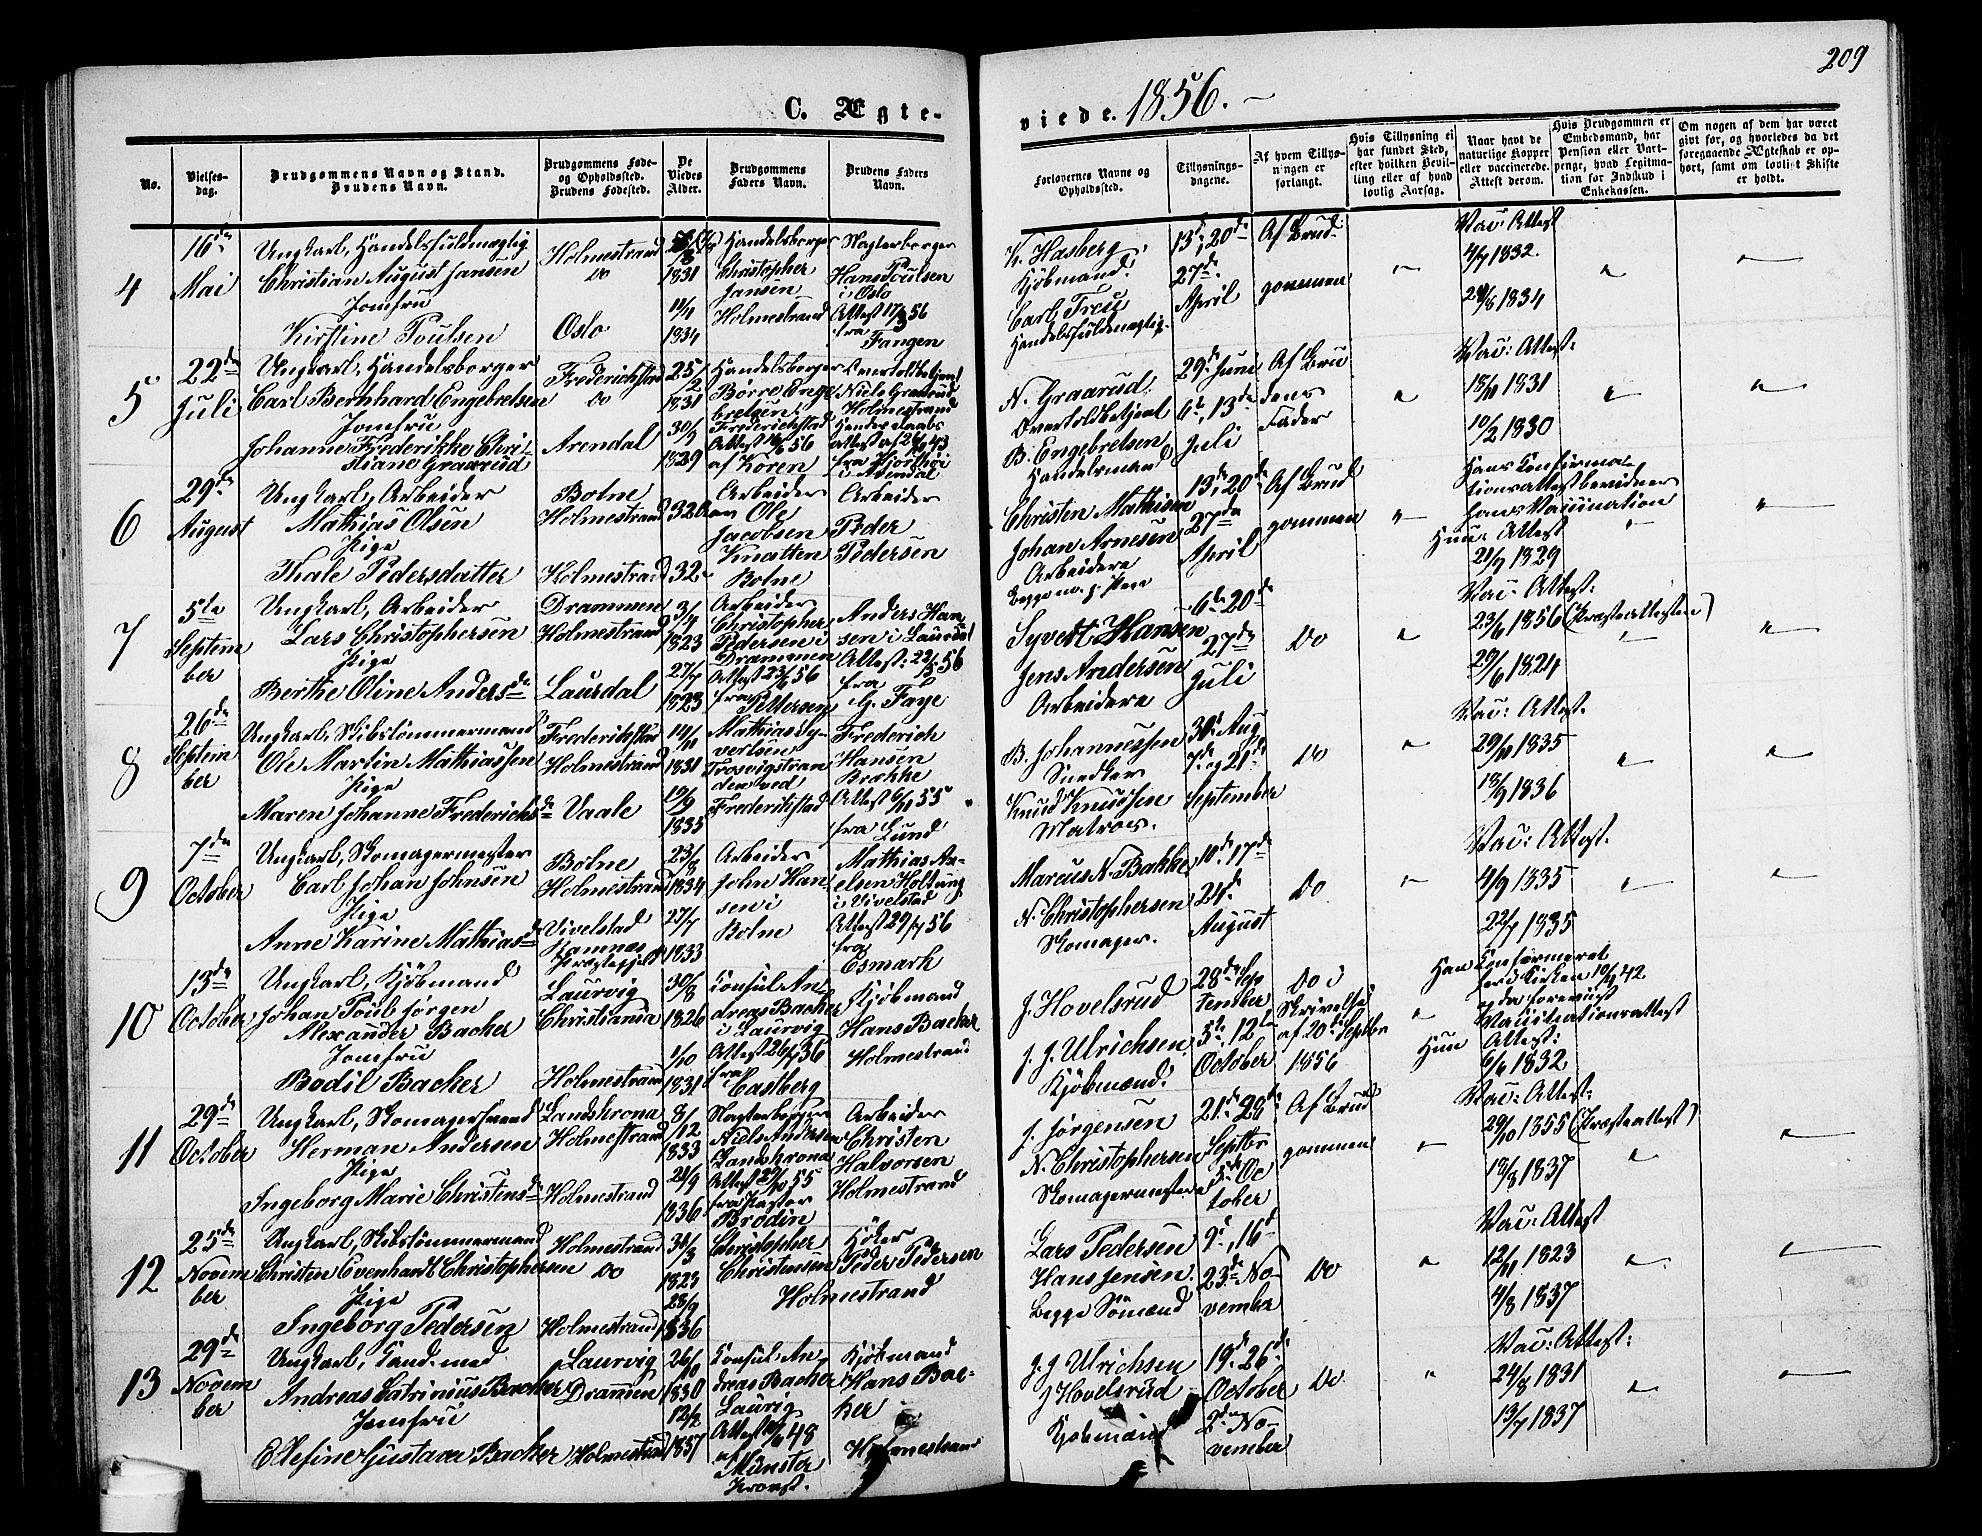 209
C. Ægte-
viede. 1856.
No.
Vielses-
dag.
Brudgommens Navn og Stand.
Brudens Navn.
Brudgommens Føde-
og Opholdssted.
Brudens Fødested.
De
Viedes
Alder.
Brudgommens
Faders Navn.
Brudens Faders
Navn.
Forlovernes Navne og
Opholdssted.
Tillysnings-
dagene.
Af hvem Tillys-
ningen er
forlangt.
Hvis Tillysning ei
har fundet Sted,
efter hvilken Bevil-
ling eller af hvad
lovlig Aarsag.
Naar havt de
naturlige Kopper
eller vaccinerede.
Attest derom.
Hvis Brudgommen er
Embedsmand, har
Pension eller Vart-
penge, hvad Legitima-
tion for Indskud i
Enkekassen.
Om nogen af dem har været
gift før, og hvorledes da det
foregaaende Ægteskab er op-
hørt, samt om lovligt Skifte
er holdt.
4
16de
Mai
Ungkarl, Handelsfuldmægtig
Christian August Jansen
Jomfru
Kirstine Poulsen
Holmestrand
do
Oslo
1831
11/1
1834
Handelsborger
Christopher
Jansen
Holmestrand
Slagterborger
Hans Poulsen
i Oslo
Attest 17/3 56
fra
Fangen
K. Hasberg,
Kjøbmand.
Carl Freu
Handelsfuldmægtig.
13de, 20de
27de
April
Af Brud-
gommen
Vac: Attest
4/7 1832.
24/8 1834
5
22de
Juli
Ungkarl, Handelsborger
Carl Bernhard Engebretsen
Jomfru
Johanne Frederikke Chri-
stiane Graarud
Frederichstad
do
Arendal
25/2
1831
30/9
1829
Handelsborger
Børre Enge
bretsen
Frederichstad
Attest 16/6 56
af Koren
Overtoldbetjent
Niels Graarud
Holmestrand
N. Graarud
Overtoldbetjent
B. Engebretsen
Handelsmand
29de Juni
6te, 13de
Juli
Af Bru
dens
Fader
Vac: Attest:
18/11 1831
10/2 1830
6
29de
August
Ungkarl, Arbeider
Mathias Olsen
Pige
Thale Pedersdatter
Botne
Holmestrand
Holmestrand
32 Aar
32
Arbeider
Ole
Jacobsen
Knatten
Botne
Arbeider
Peder
Pedersen
Christen Mathisen
Johan Arnesen
Arbeidere
13de, 20de
27de
April
Af Brud
gommen
Hans Confirma-
tionsattest bevidner
hans Vaccination
Hun: Attest
21/7 1829
7
5te
Septem
ber
Ungkarl, Arbeider
Lars Christophersen
Pige
Berthe Oline Andersd.
Drammen
Holmestrand
Laurdal
3/4
1823
27/7
1823
Arbeider
Christopher
Pedersen i
Drammen
Attest 23/6 56
fra
Pettersen
Anders Han
sen i Laurdal
Attest: 22/5 56
fra
G. Faye
Syvert Hansen
Jens Andersen
Arbeidere
6te 20de
27de
Juli
Do
Vac: Attest:
23/6 1856 (Præsteattesten)
29/6 1824
8
26de
Septem
ber
Ungkarl, Skibstømmermand
Ole Martin Mathiassen
Pige
Maren Johanne Frederichsd.
Frederichstad
Holmestrand
Vaale
14/11
1831
19/9
1835
Mathias Sy-
vertsen
Trosvigstran
den ved
Frederikstad
Frederich
Hansen
Brække
Attest 6/11 55
fra Lund
B. Johannessen
Snedker
Knud Knudsen
Matros.
30te Aug
7de og 21de
September
Do
Vac: Attest.
29/10 1835
13/9 1836
9
7de
October
Ungkarl, Skomagermester
Carl Johan Johnsen
Pige
Anne Karine Mathiasd.
Botne
Holmestrand
Vivelstad
Ramnes
Præstegjeld
23/8
1834
27/7
1833
Arbeider
John Han
sen i
Botne
Mathias An-
elsen Holtung
i Vivelstad
Attest 29/7 56
fra
Esmark
Marcus N. Bakke
N. Christophersen
Skomager.
10de 17de
24de
August
Do
Vac: Attest.
4/9 1835
22/7 1835
10
13de
October
Ungkarl, Kjøbmand
Johan Poul Jørgen
Alexander Backer
Jomfru
Bodil Backer
Laurvig
Christiania
Holmestrand
30/8
1826
1/10
1831
Consul An-
dreas Backer
i Laurvig
Attest 26/9 56
fra
Castberg
Kjøbmand
Hans Backer
Holmestrand
J. Hovelsrud
J. J. Ulrichsen
Kjøbmænd.
28de Sep
tember
5te, 12te
October
Do i
Skrivelse
af 20de Septbr
1856
Han Confirmeret
her i Kirken 10/4 42
og da foreviist
Vaccinationsattest
Hun Attest:
6/6 1832.
11
29de
October
Ungkarl, Skomagersvend
Herman Andersen
Pige
Ingeborg Marie Christensd.
Landskrona
Holmestrand
Holmestrand
8/12
1833
24/9
1836
Slagterborger
Niels Andersen
Landskrona
Attest 29/10 55
fra Pastor
Brodin
Arbeider
Christen
Halvorsen
Holmestrand
J. Jørgensen
N. Christophersen
Skomagermestere
21de 28de
Septbr
5te Oc
tober
Af Brud
gommen
Vac: Attest:
29/10 1855 (Præsteattest)
13/8 1837
12
25de
Novem
ber
Ungkarl, Skibstømmermand
Christen Evenhard Christophersen
Pige
Ingeborg Pedersen
Holmestrand
do
Holmestrand
30/3
1823
28/9
1836
Christopher
Christensen
Høker
Peder Pedersen
Holmestrand
Lars Pedersen
Hans Jensen
Begge Sömænd
9de, 16de
23de No-
vember
Do
Vac: Attest
12/11 1823
4/8 1837
13
29de
Novem
ber
Ungkarl, Cand. med
Andreas Catrinius Backer
Jomfru
Ellefine Gustava Backer
Laurvig
Drammen
Holmestrand
26/10
1830
12/2
1837
Consul An
dreas Backer
Laurvig
Attest 48
af
Münster
Provst.
Kjøbmand
Hans Bac-
ker
Holmestrand
J. J. Ulrichsen
J Hovelsrud
Kjøbmænd
19de 26de
October
2den No-
vember
Do
Vac: Attest:
24/8 1831
13/7 1837